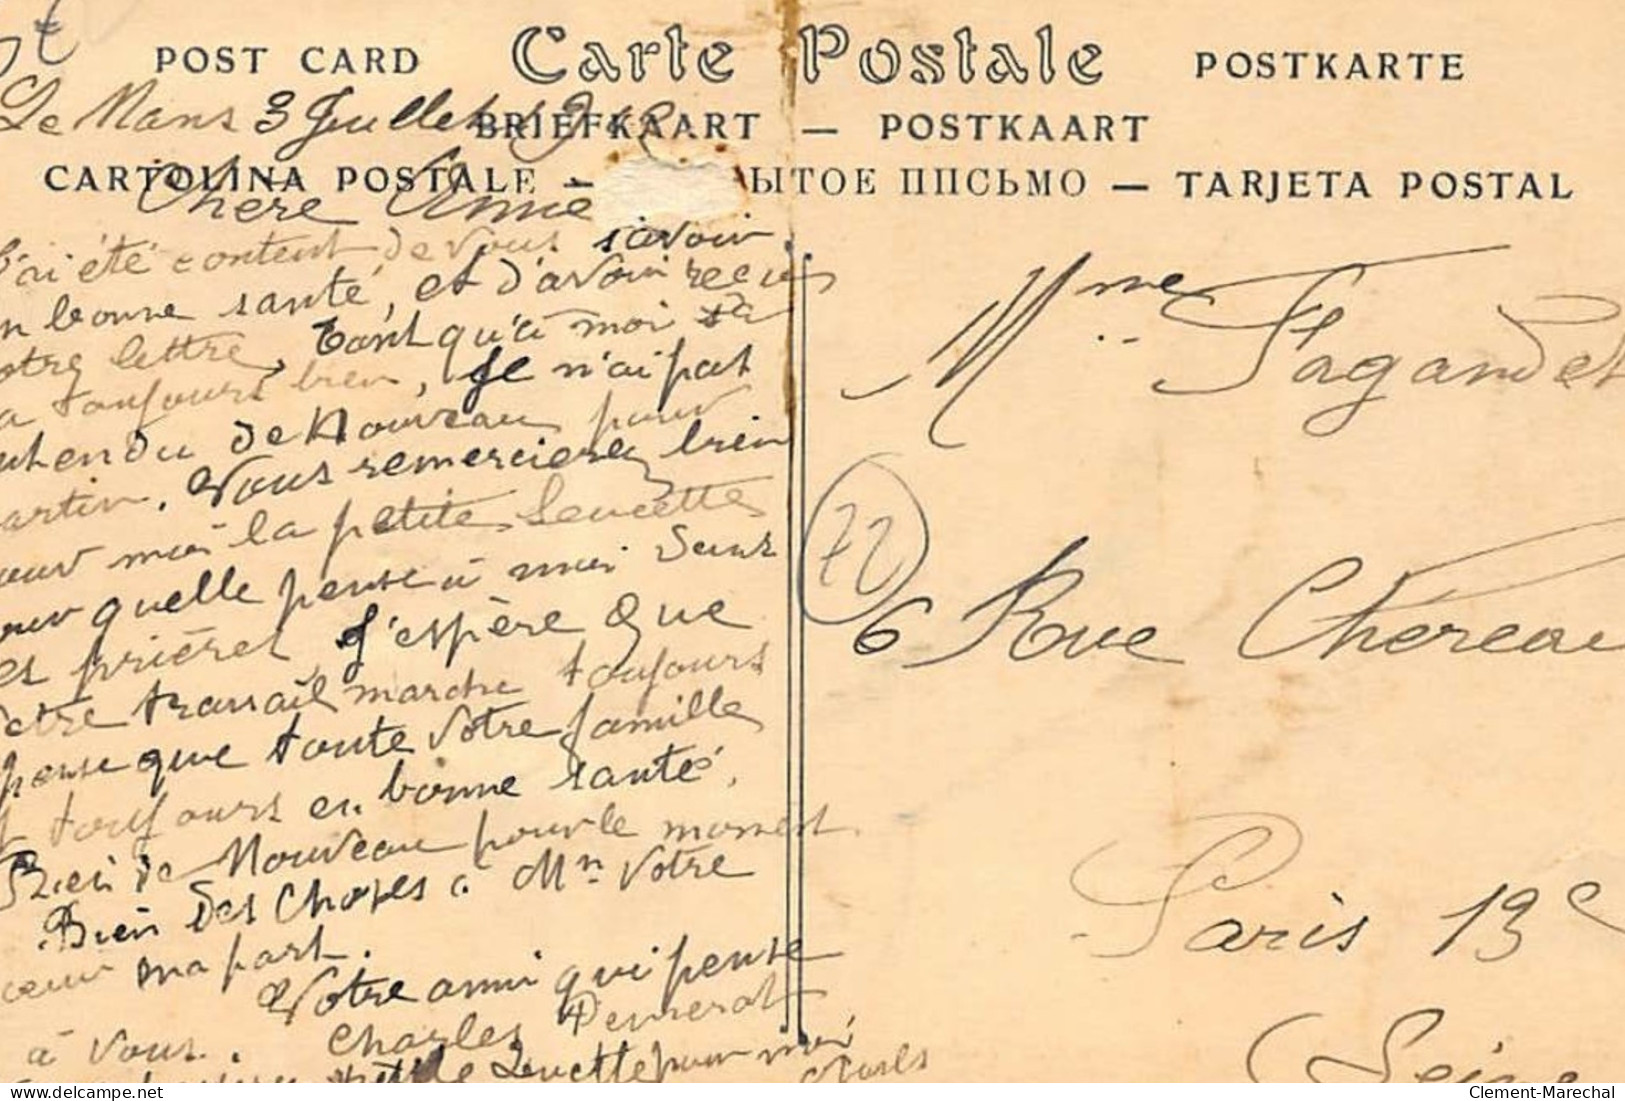 POST CARD Carte Postale POSTKARTE
BRIEFKAART — POSTKAART
CARTOLINA POSTALE — ЫТОЕ ППСЬМО — TARJETA POSTAL
Le Mans 3 Juillet
Chère Amie
J'ai été content de vous savoir
en bonne santé, et d'avoir reçu
votre lettre, tant qu'à moi sa
va toujours bien, Je n'ai pas
entendu de Nouveau pour
Martin. Vous remercierez bien
pour moi la petite Lucette
pour quelle pense à moi dans
ses prières, J'espère que
votre travail marche toujours
pense que toute votre famille
toujours en bonne santé,
Rien de Nouveau pour le moment
Bien des Choses à Mr votre
ma part.
Votre ami qui pense
à vous. Charles
Lucette pour moi
Charles
Mme Fagandet
72
6 Rue Chereau
Paris 13e
Seine
Clement-Marechal